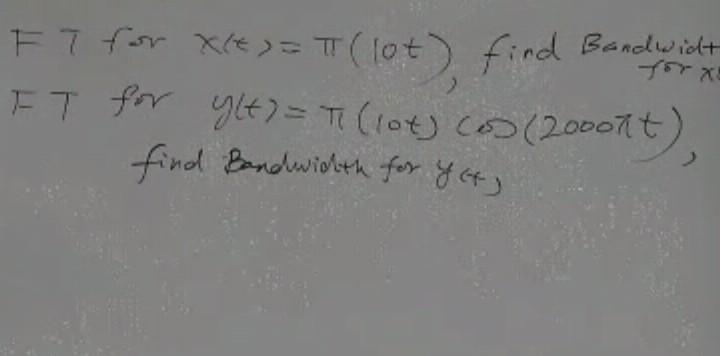 FT for x(t) = π(10t), find Bandwidt
for x(
FT for y(t) = π(10t) cos(2000πt),
find Bandwidth for y(t),